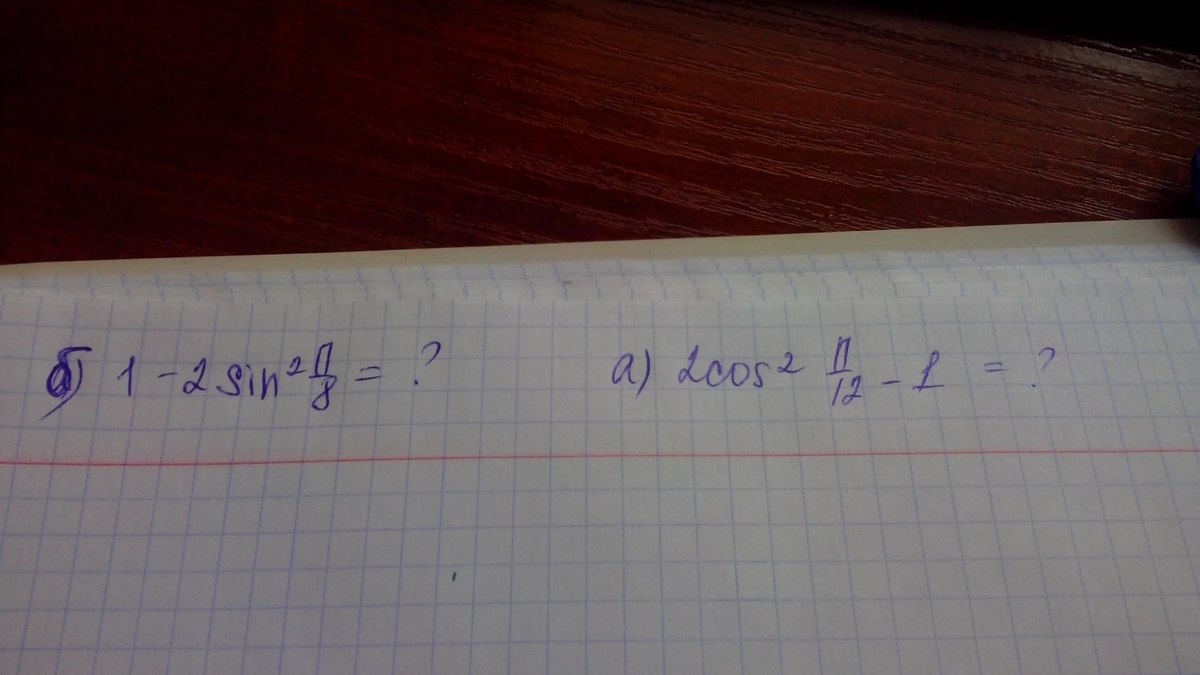 б) 1 - 2 sin² π/8 = ? а) 2cos² π/12 - 1 = ?